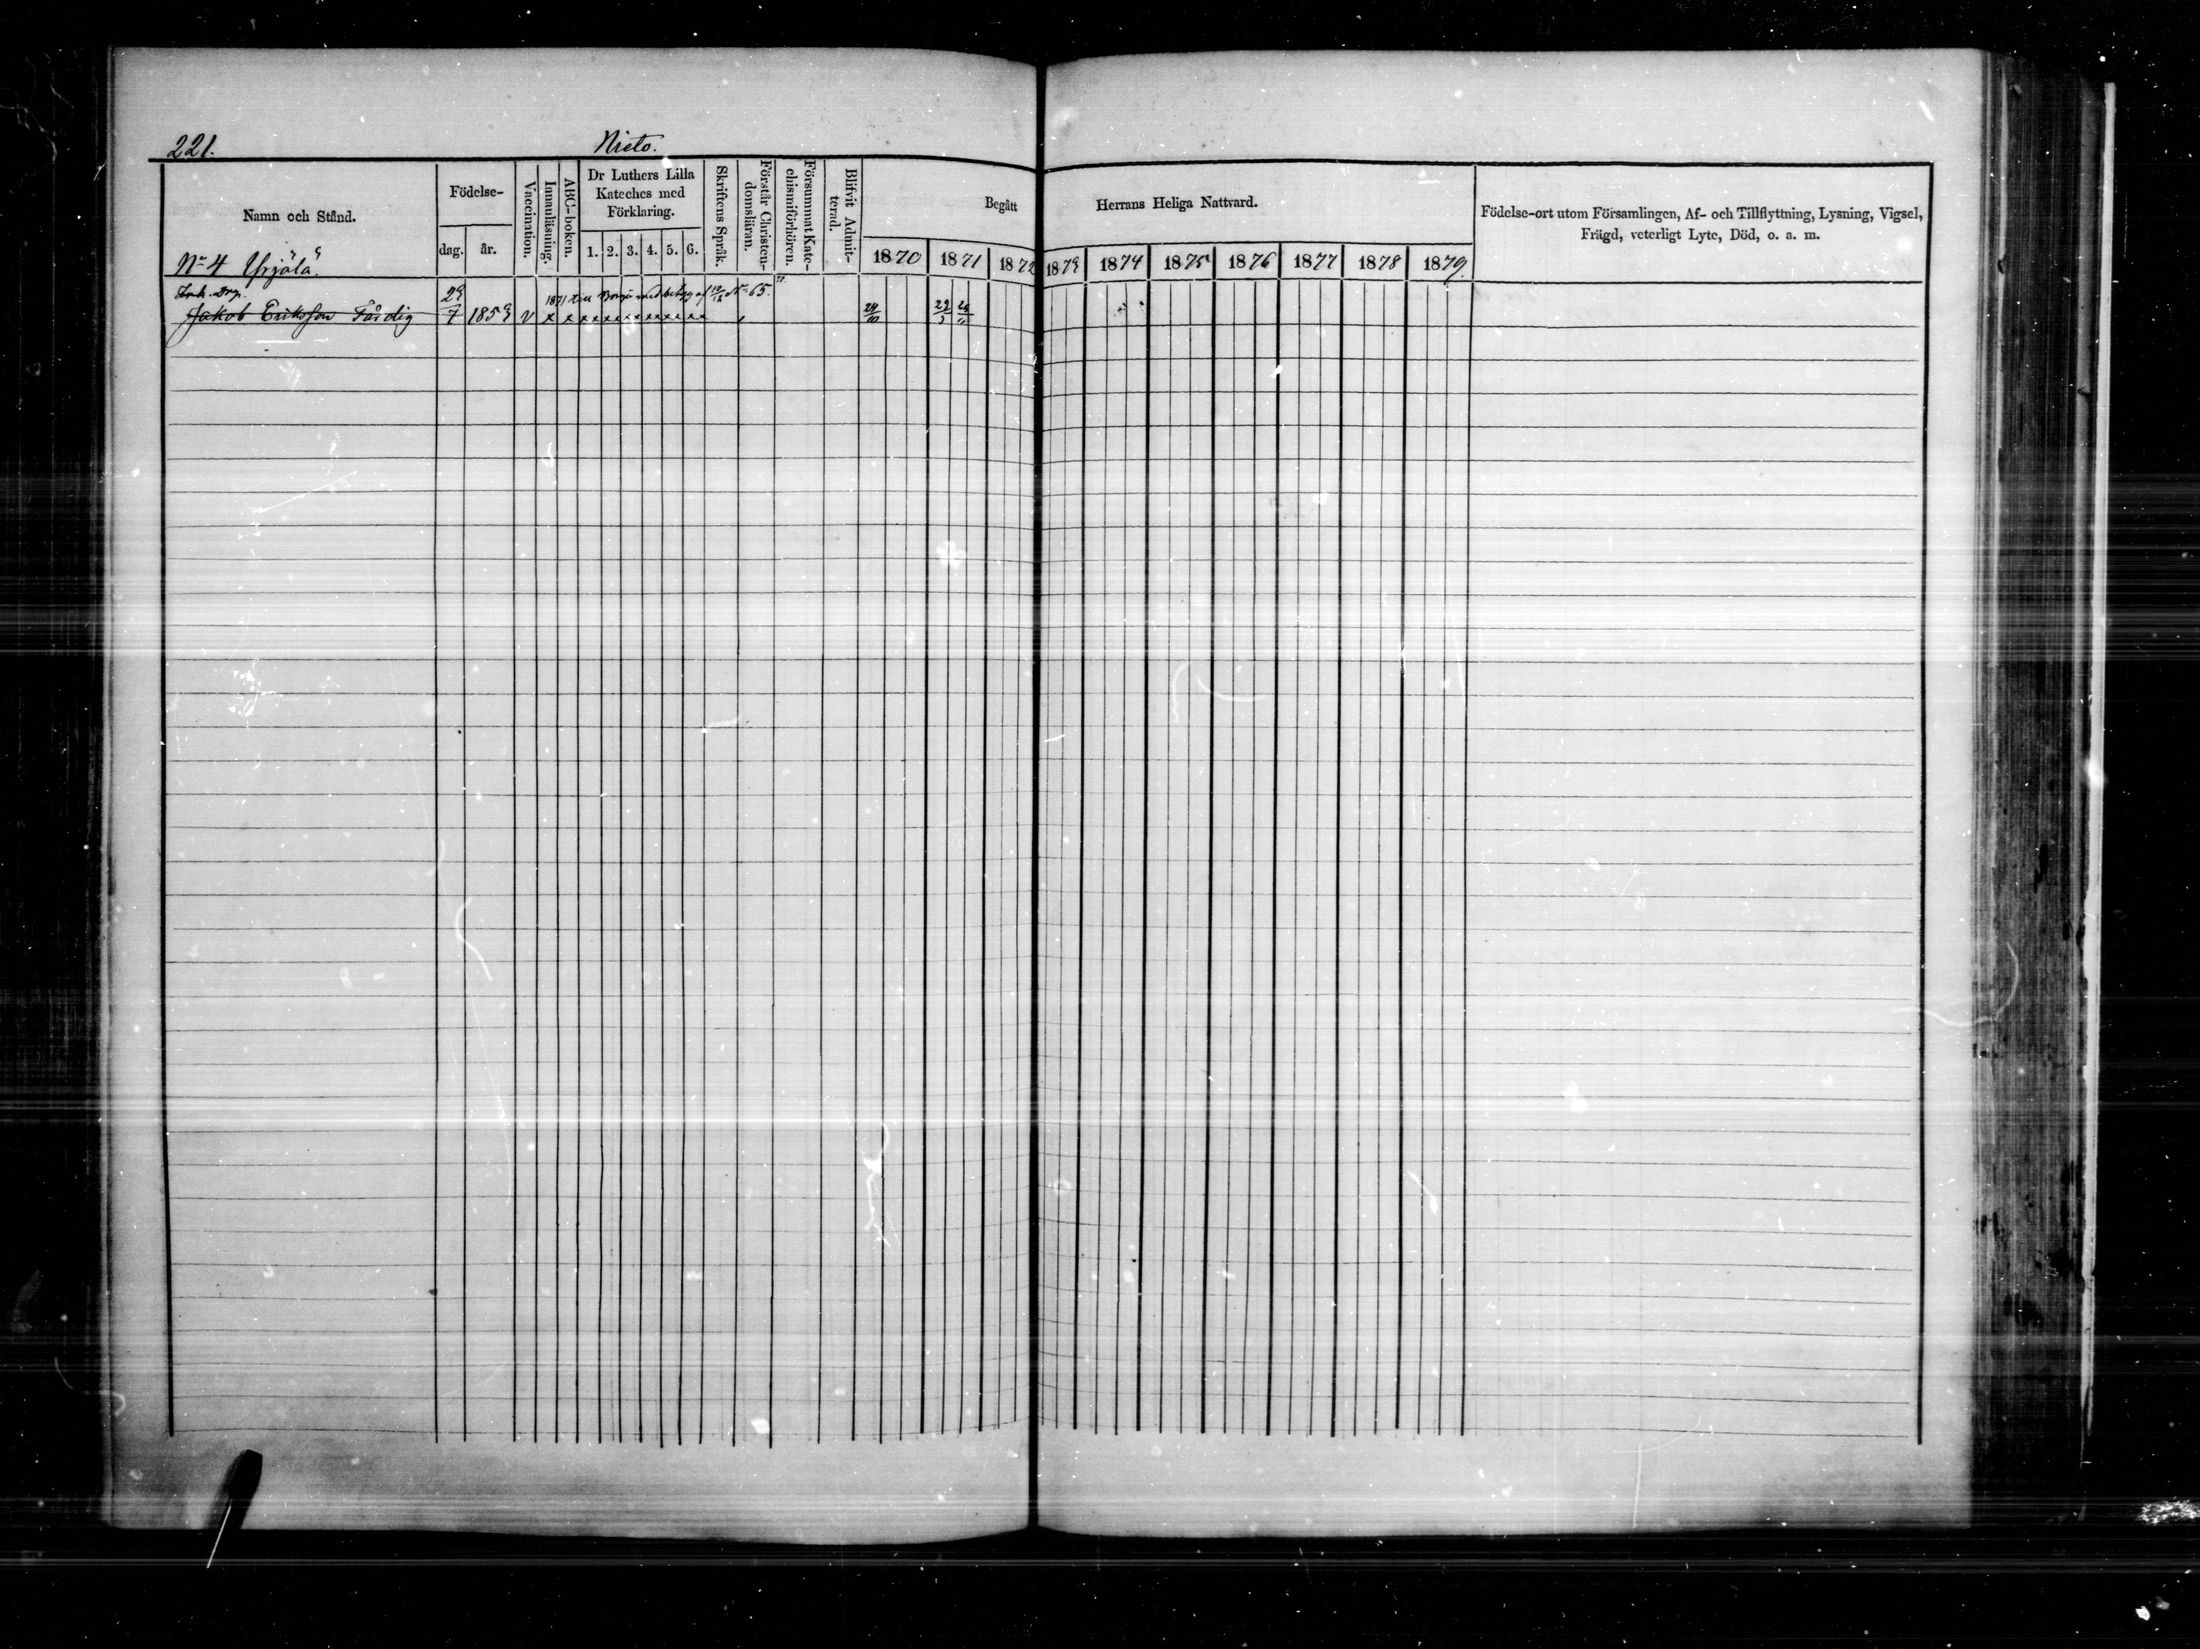 221.
Nieto.
Namn och Stånd.
Födelse-
dag. år.
Vaccination.
Innanläsning.
ABC-boken.
Dr Luthers Lilla
Kateches med
Förklaring.
1. 2. 3. 4. 5. 6.
Skriftens Språk.
Förstår Christen-
domsläran.
Försummat Kate-
chismiförhören.
Blifvit Admit-
terad.
Begått Herrans Heliga Nattvard.
1870 1871 1872 1873 1874 1875 1876 1877 1878 1879.
Födelse-ort utom Församlingen, Af- och Tillflyttning, Lysning, Vigsel,
Frägd, veterligt Lyte, Död, o. a. m.
No 4 Yrjölä.
1871 till Borgå med betyg af No 65.
Jakob Eriksson Färdig 29/7 1853 v x x x x x x x x x x x x x x 29